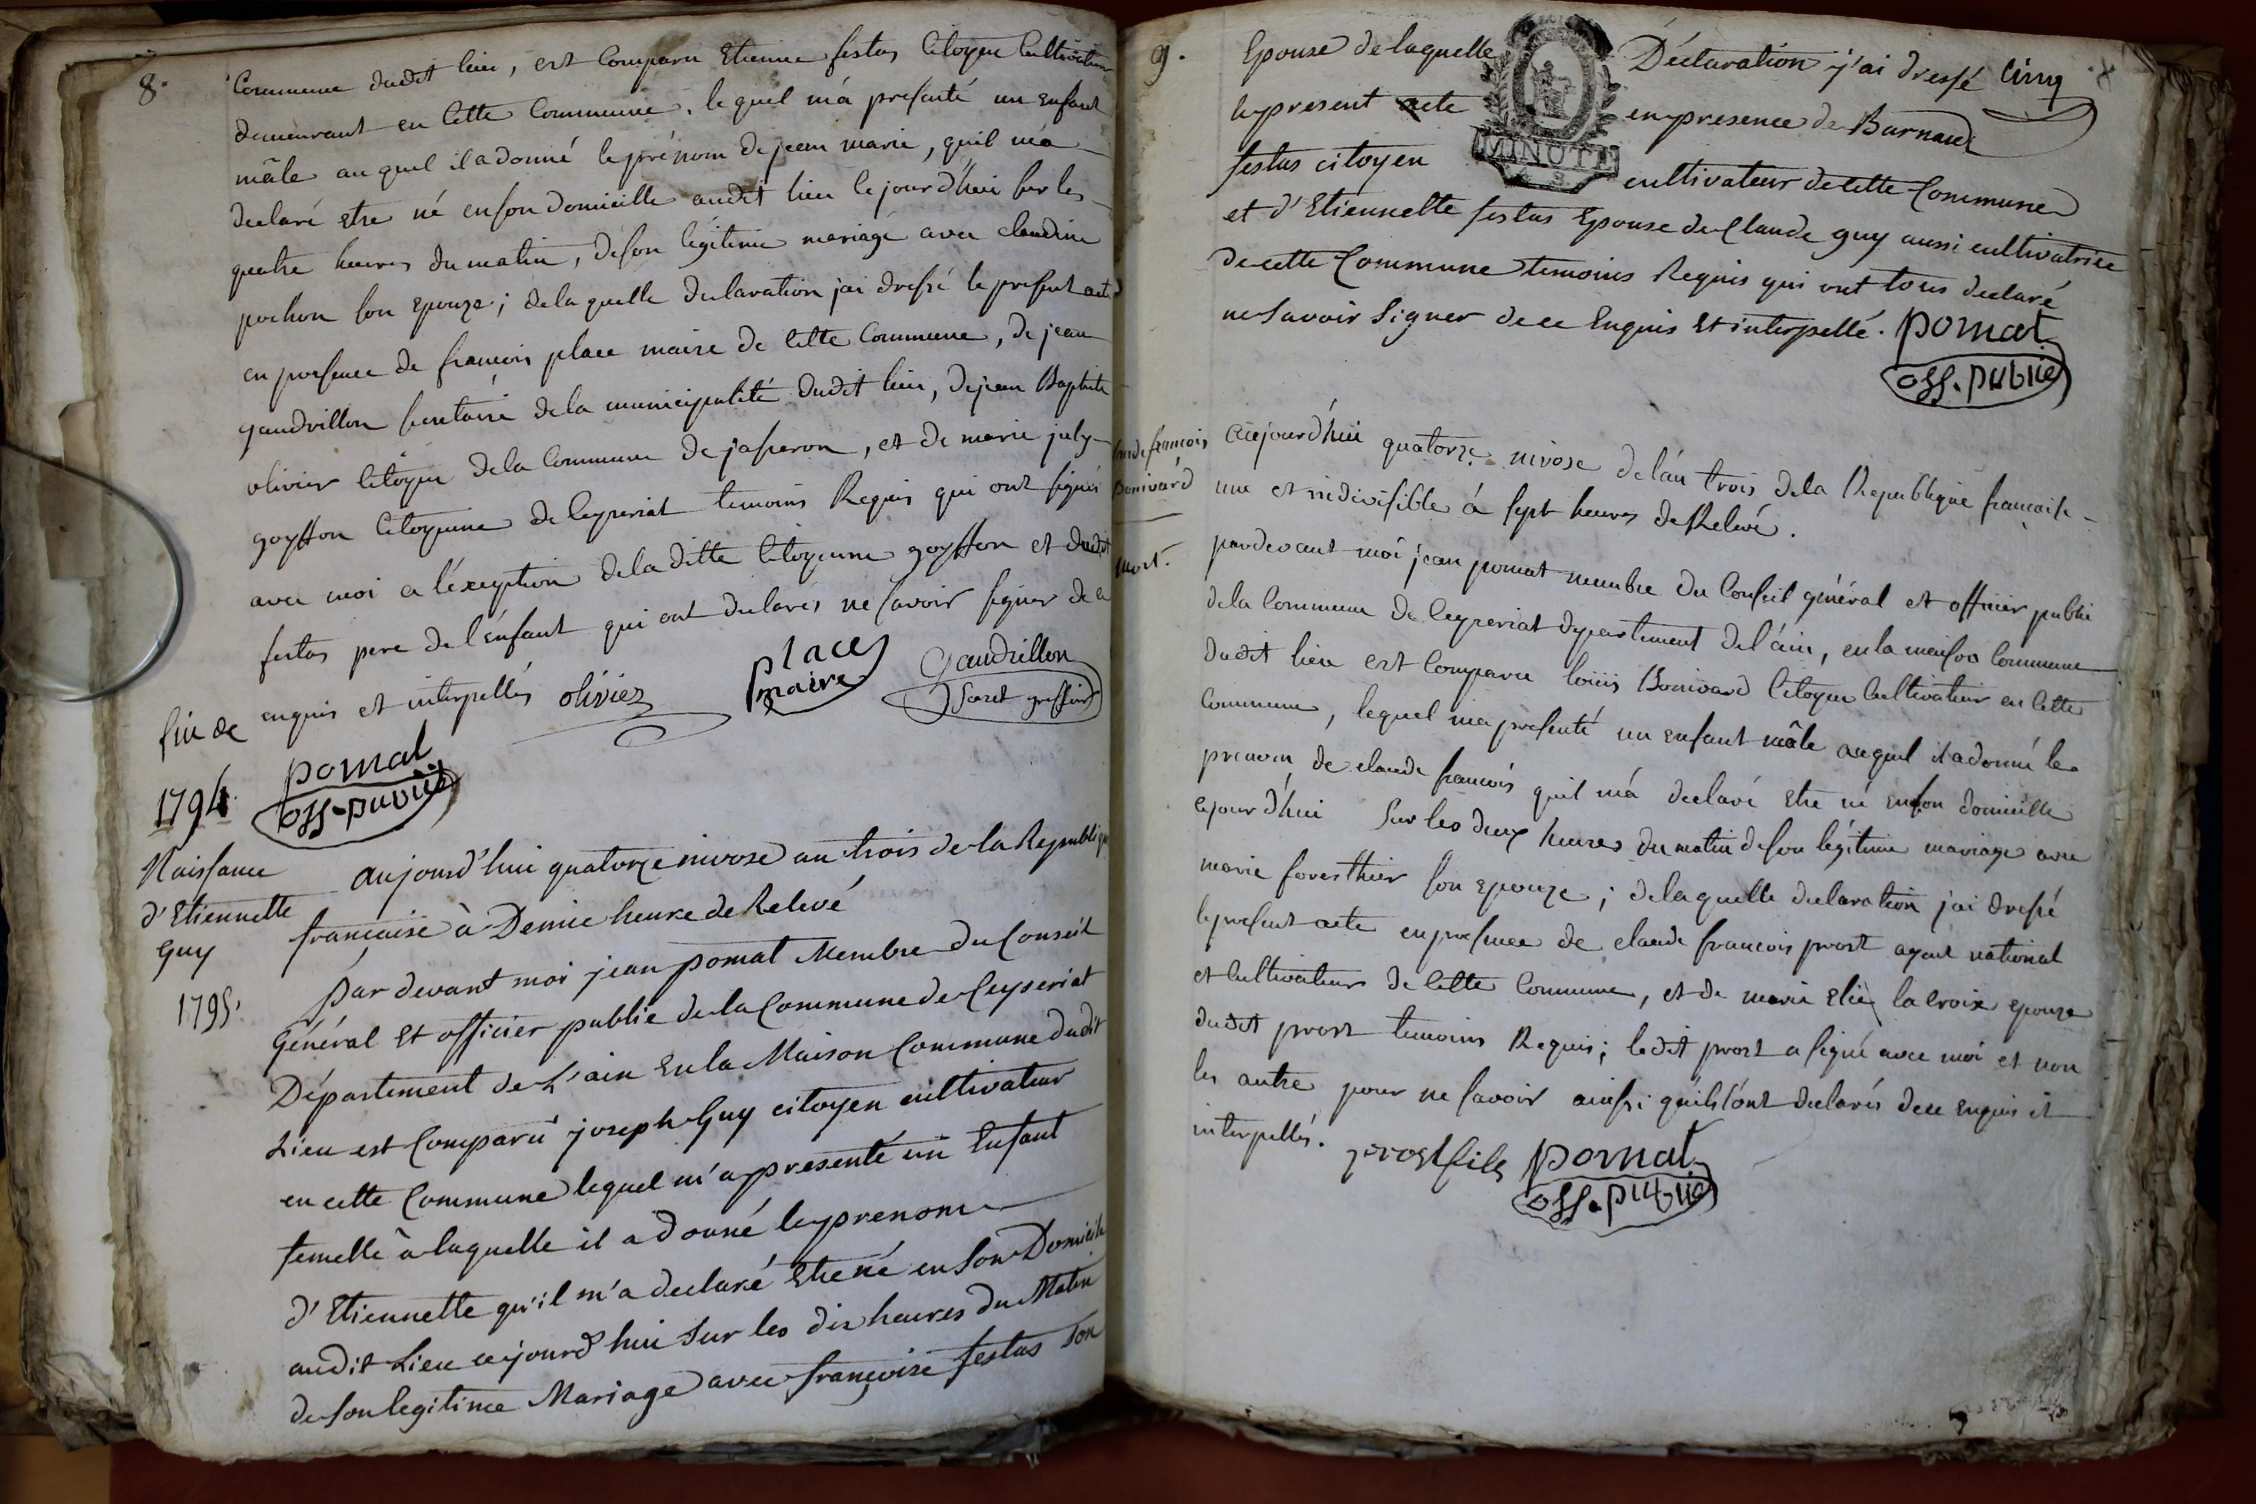 8.
Commune dudit lieu, est Comparu Etienne festas Citoyen Cultivateur
demeurant en Cette Commune, lequel m'á presenté un enfant
mâle auquel il a donné le prénom de jean marie, quil m'a
declaré etre né en son domicille audit lieu cejourd'huí sur les
quatre heures du matin, de son légitime mariage avec claudine
pochon son epouze; de la quelle declaration j'ai dressé le present acte
en presence de francois place maire de Cette Commune, de jean
gaudrillon secretaire de la municipalité dudit lieu, de jean Baptiste
olivier Citoyen de la Commune de jasseron, et de marie july
goyffon Citoyenne de Ceyseriat temoins Requis qui ont signés
avec moi a l'éxeption de la ditte Citoyenne goyffon et dudit
festas pere de l'enfant qui ont declarés ne savoir signer de ce
enquis et interpellés olivier place maire Gaudrillon
Secret greffier
fin de
1794
pomat
off. public
Naissance
d'Etiennette
Guy
1795.
aujourd'hui quatorze nivose an trois de la Republique
française à Demie heure de Relevé
Par devant moi jean pomat Membre du Conseil
Général Et officier public de la Commune de Ceyseriat
Département de L'ain En la Maison Commune dudit
Lieu est Comparu joseph Guy citoyen cultivateur
en cette Commune lequel m'a presenté un Enfant
femelle à laquelle il a donné le prenom
d'Etiennette qu'il m'a declaré Etre né en son Domicile
audit Lieu cejourd'hui sur les dix heures du Matin
de son legitime Mariage avec françoise festas son
9.
Epouse de laquelle Déclaration j'ai dressé cinq
le present acte en presence de Barnard
MINUTE
festas citoyen cultivateur de cette Commune
et d'Etiennette festas Epouse de Claude guy aussi cultivatrice
de cette Commune temoins Requis qui ont tous declaré
ne savoir Signer de ce Enquis Et interpellé. pomat
off. public
françois
Bonivard
mort.
aujourd'hui quatorze nivose de l'án trois de la Republique francaise
une et indivisible á sept heures de Relevé.
pardevant moi jean pomat membre du Conseil général et officier public
de la Commune de Ceyseriat departement de l'ain, en la maison Commune
dudit lieu est Comparu louis Bonivard Citoyen Cultivateur en Cette
Commune, lequel m'a presenté un enfant mâle auquel il a donné le
prenom de claude francois quil m'á declaré etre né en son domicille
cejourd'hui sur les deux heures du matin de son légitime mariage avec
marie foresthier son epouze; de la quelle declaration j'ai dressé
le present acte en presence de claude francois prost agent national
et Cultivateur de Cette Commune, et de marie la croix epouze
dudit prost temoins Requis; ledit prost a signé avec moi et non
les autre pour ne savoir ainssi quils l'ont declarés de ce enquis et
interpellés. prost fils pomat
off. public